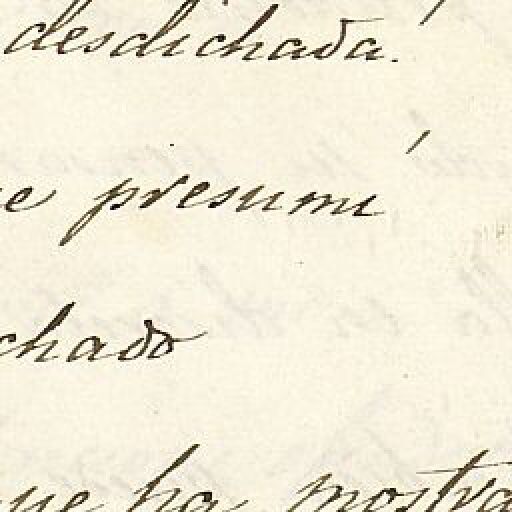 desdichada.
e presumí
chado
ue ha mostra